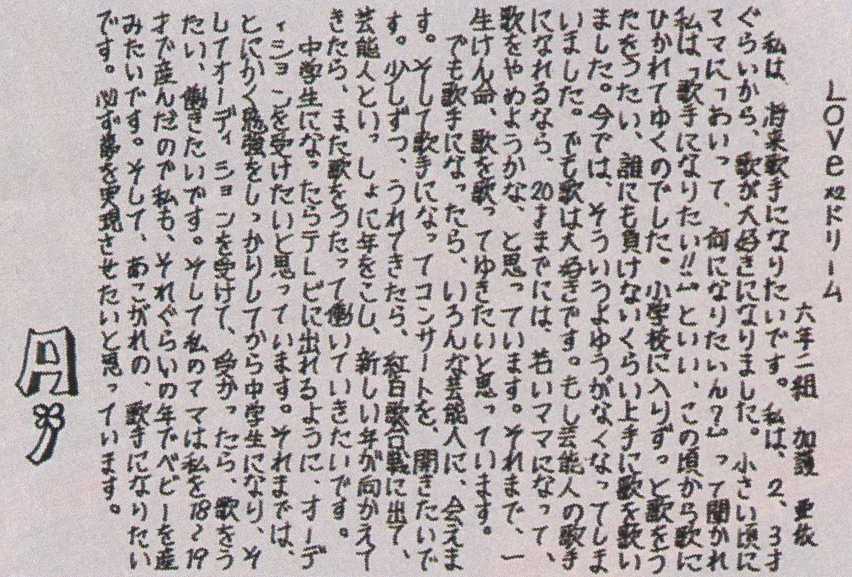 Love×2ドリーム
六年二組 加護 亜依
私は、将来歌手になりたいです。私は、2、3才
ぐらいから、歌が大好きになりました。小さい頃に
ママに「あいって、何になりたいん?」って聞かれ
私は「歌手になりたい!!」といい、この頃から歌に
ひかれてゆくのでした。小学校に入りずっと歌をう
たをうたい、誰にも負けないくらい上手に歌を歌い
ました。今では、そういうよゆうがなくなってしま
いました。でも歌は大好きです。もし芸能人の歌手
になれるなら、20才までには、若いママになって、
歌をやめようかな、と思っています。それまで、一
生けん命、歌を歌ってゆきたいと思っています。
でも歌手になったら、いろんな芸能人に、会えま
す。そして歌手になってコンサートを、開きたいで
す。少しずつ、うれてきたら、紅白歌合戦に出て、
芸能人といっしょに年をこし、新しい年が向かえて
きたら、また歌をうたって働いていきたいです。
中学生になったらテレビに出れるように、オーデ
ィションを受けたいと思っています。それまでは、
とにかく勉強をしっかりしてから中学生になり、そ
してオーディションを受けて、合かったら、歌をう
たい、働きたいです。そして私のママは私を18〜19
才で産んだので私も、それぐらいの年でベビーを産
みたいです。そして、あこがれの、歌手になりたい
です。必ず夢を実現させたいと思っています。